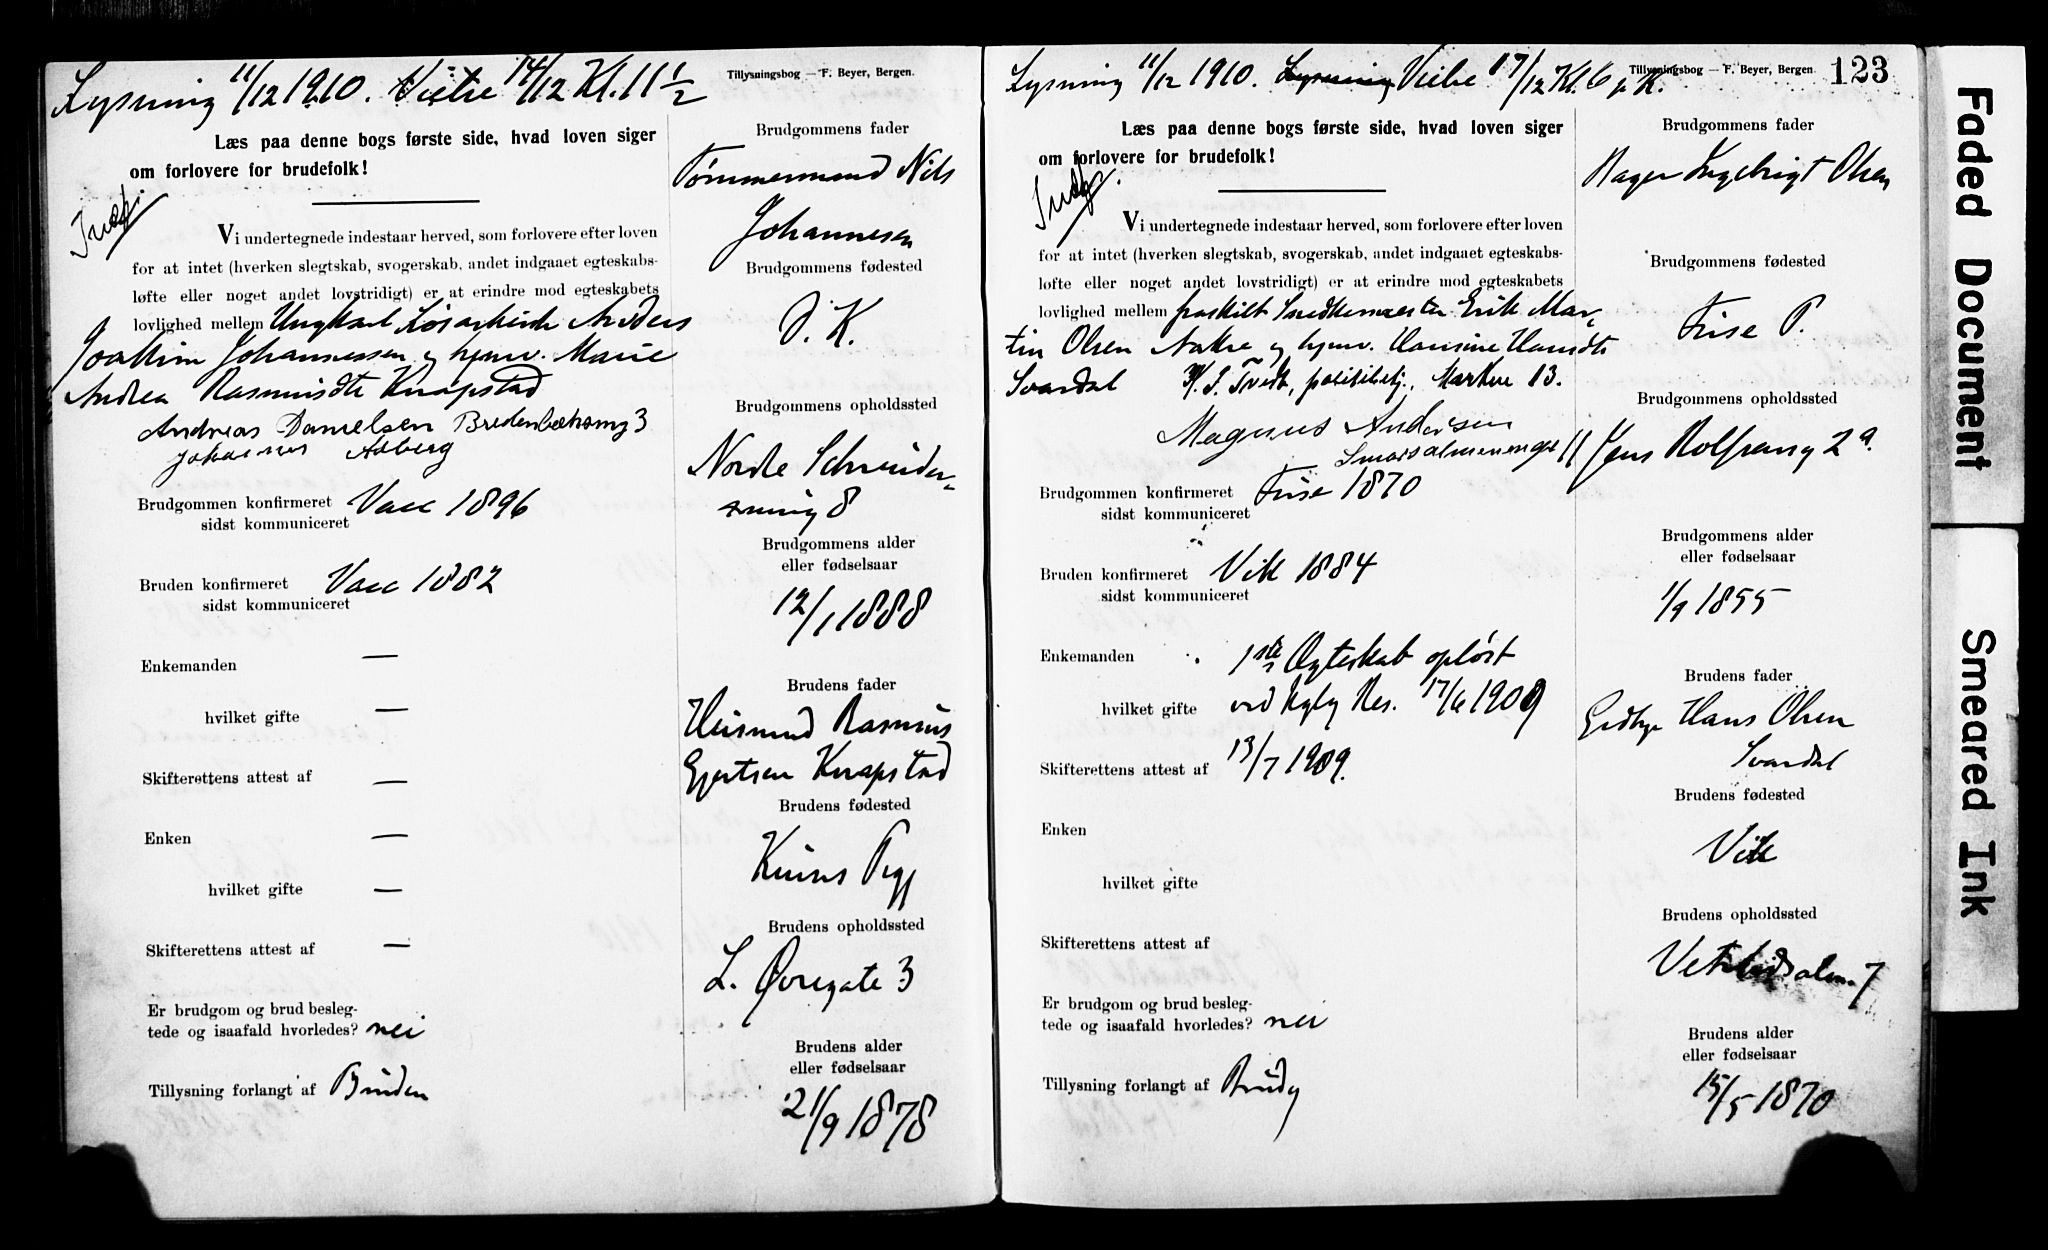 Lysning 11/12 1910. Vielse 14/12 Kl. 11 1/2
Tillysningsbog — F. Beyer, Bergen.
Læs paa denne bogs første side, hvad loven siger
om forlovere for brudefolk!
Vi undertegnede indestaar herved, som forlovere efter loven
for at intet (hverken slegtskab, svogerskab, andet indgaaet egteskabs-
løfte eller noget andet lovstridigt) er at erindre mod egteskabets
lovlighed mellem Ungkarl Løsarbeider Anders
Joakim Johannessen og hjemv. Marie
Andrea Rasmusdtr Knapstad
Andreas Danielsen Bredenbeksmg 3
Johannes Aaberg
Brudgommen konfirmeret Vaac 1896
sidst kommuniceret
Bruden konfirmeret Vaac 1882
sidst kommuniceret
Enkemanden —
hvilket gifte —
Skifterettens attest af —
Enken —
hvilket gifte —
Skifterettens attest af —
Er brudgom og brud besleg-
tede og isaafald hvorledes? nei
Tillysning forlangt af Bruden
Brudgommens fader
Tømmermand Nils
Johannesen
Brudgommens fødested
D. K.
Brudgommens opholdssted
Nordre Skreddersmug 8
Brudgommens alder
eller fødselsaar
12/1 1888
Brudens fader
Husmand Rasmus
Gjertsen Knapstad
Brudens fødested
Kinns Pgj
Brudens opholdssted
L. Øvregate 3
Brudens alder
eller fødselsaar
21/9 1878
Lysning 11/12 1910. Lysning Vielse 17/12 Kl. 6 i K.
Tillysningsbog — F. Beyer, Bergen.
123
Læs paa denne bogs første side, hvad loven siger
om forlovere for brudefolk!
Vi undertegnede indestaar herved, som forlovere efter loven
for at intet (hverken slegtskab, svogerskab, andet indgaaet egteskabs-
løfte eller noget andet lovstridigt) er at erindre mod egteskabets
lovlighed mellem fraskilt Snedkermester Erik Mar-
tin Olsen Nakre og hjemv. Hansine Hansdtr
Svardal K. J. Tvedt, politibetj., Marken 13.
Magnus Andersen
Smørsalmenningen 11
Brudgommen konfirmeret Frise 1870
sidst kommuniceret
Bruden konfirmeret Vik 1884
sidst kommuniceret
Enkemanden 1ste Ægteskab opløst
hvilket gifte ved kglg Res. 17/6 1909
Skifterettens attest af 13/7 1909.
Enken
hvilket gifte
Skifterettens attest af
Er brudgom og brud besleg-
tede og isaafald hvorledes? nei
Tillysning forlangt af Brudg
Brudgommens fader
Bager Ingebrigt Olsen
Brudgommens fødested
Frise P.
Brudgommens opholdssted
Jens Rolfsvang 2 a.
Brudgommens alder
eller fødselsaar
1/9 1855
Brudens fader
Hans Olsen
Svardal
Brudens fødested
Vik
Brudens opholdssted
Vetrlidsalm. 7
Brudens alder
eller fødselsaar
15/5 1870
Faded Document
Smeared Ink